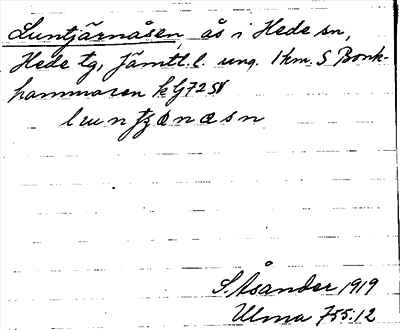 Luntjärnåsen, ås i Hede sn,
Hede tg, Jämtl. l. ung. 1 km. S Bonk-
hammaren
lɯntjænåsn
S. Åsander 1919
Ulma 755:12